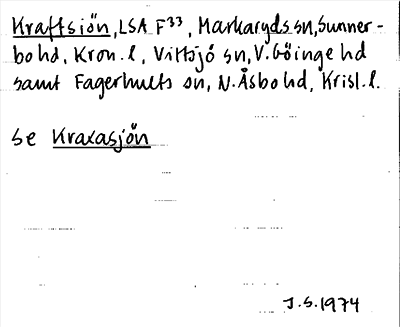 Kraftsjön, LSA F³³, Markaryds sn, Sunner-
bo hd, Kron. l, Vittsjö sn, V. Göinge hd
samt Fagerhults sn, N. Åsbo hd, Krist. l.
se Kraxasjön
J.S. 1974